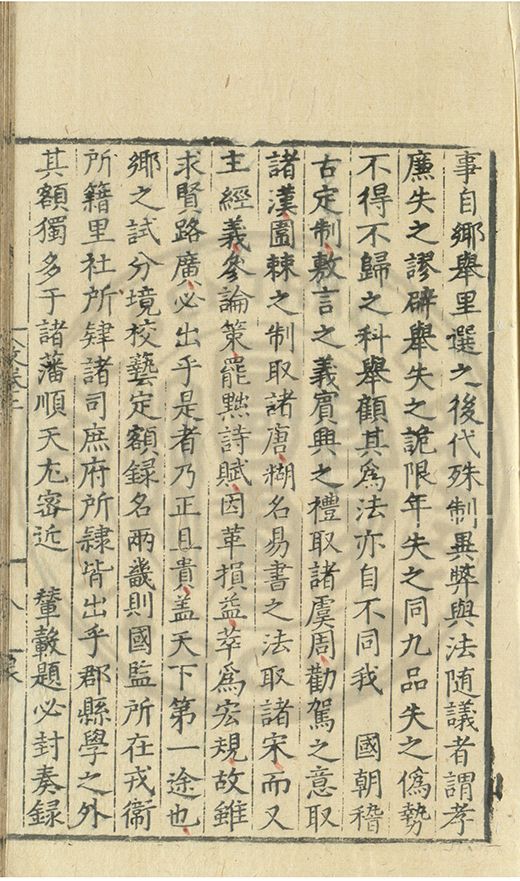 事自鄉舉里選之後代殊制異弊與法随議者謂孝
廉失之謬辟舉失之詭限年失之同九品失之僞勢
不得不歸之科舉顧其爲法亦自不同我　國朝稽
古定制敷言之義賔興之禮取諸虞周勸駕之意取
諸漢圍棘之制取諸唐糊名易書之法取諸宋而又
主經義參論策罷黜詩賦因革損益萃爲宏規故雖
求賢路廣必出乎是者乃正且貴盖天下第一途也
鄉之試分境校藝定額録名兩畿則國監所在戎衛
所籍里社所肄諸司庶府所隷皆出乎郡縣學之外
其額獨多于諸藩順天尤宻近　輦轂題必封奏録